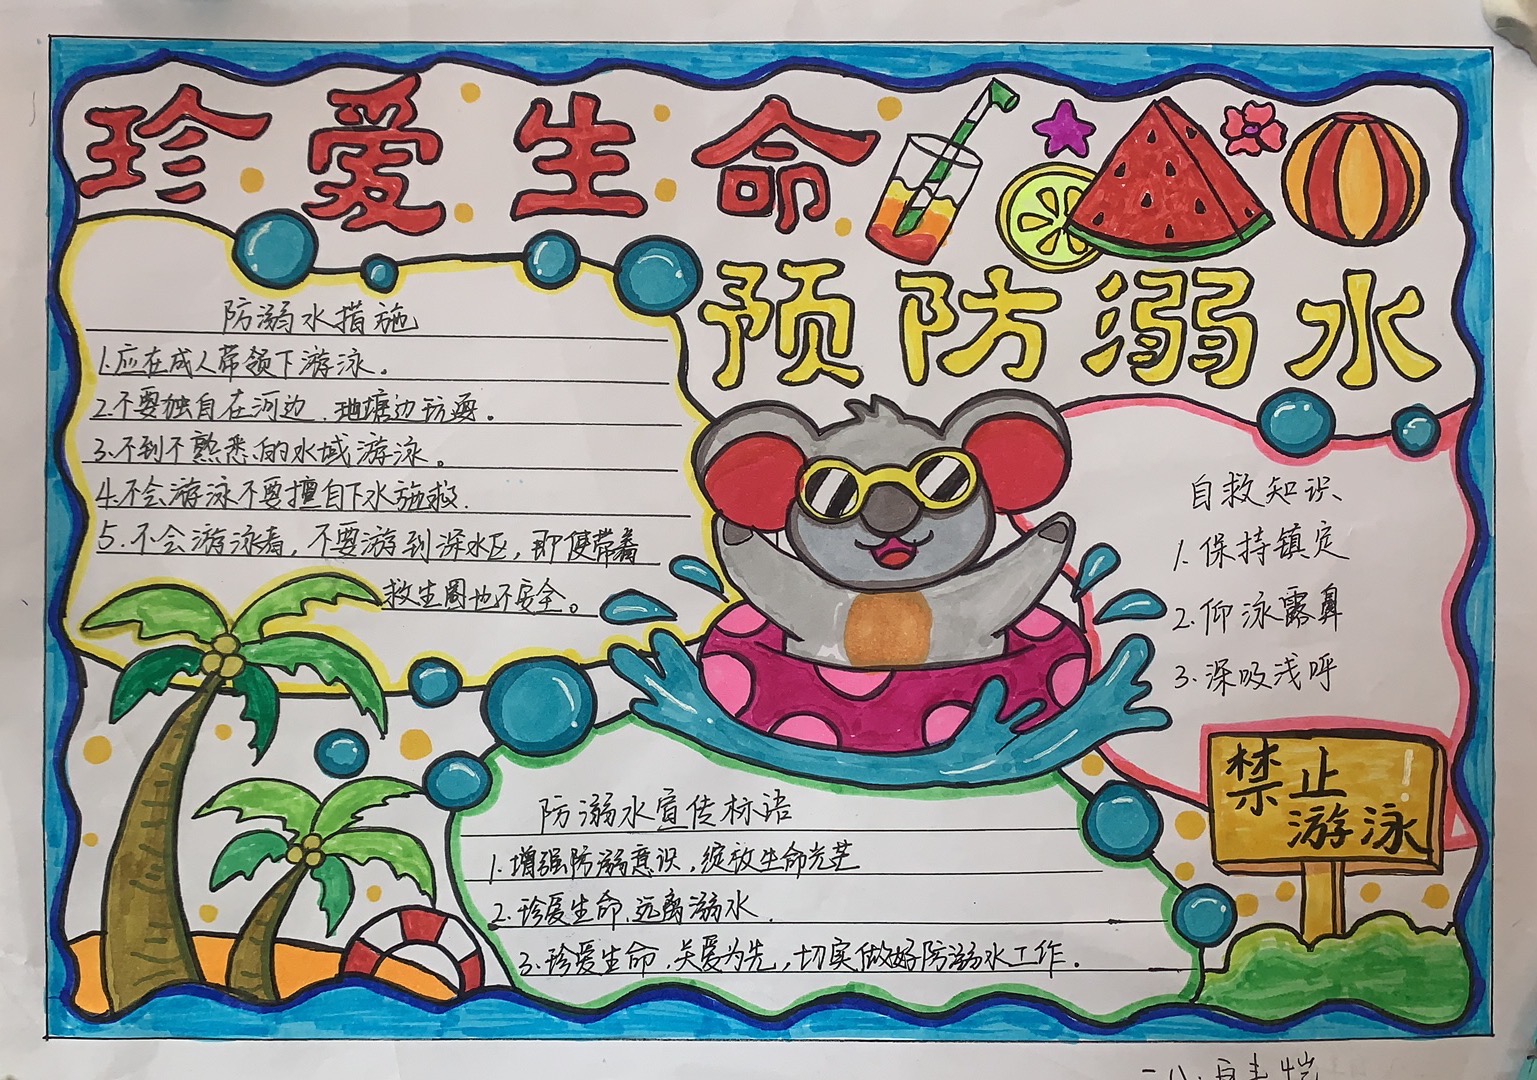 珍爱生命
预防溺水
防溺水措施
1.应在成人带领下游泳。
2.不要独自在河边、池塘边玩耍。
3.不到不熟悉的水域游泳。
4.不会游泳不要擅自下水施救.
5.不会游泳者，不要游到深水区，即使带着
救生圈也不安全。
自救知识
1.保持镇定
2.仰泳露鼻
3.深吸浅呼
禁止
游泳
防溺水宣传标语
1.增强防溺意识，绽放生命光芒
2.珍爱生命、远离溺水.
3.珍爱生命、关爱为先，切实做好防溺水工作.